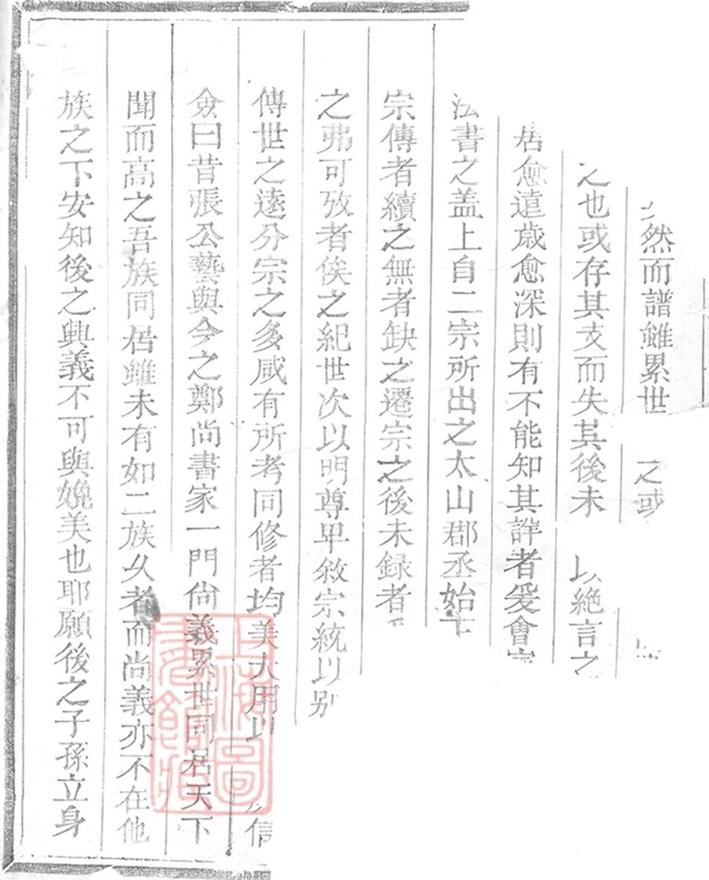 然而譜雖累世之或
之也或存其支而失其後未以絶言之
居愈遠歲愈深則有不能知其詳者爰會宗
法書之盖上自二宗所出之太山郡丞始
宗傳者續之無者缺之遷宗之後未録者
之弗可攷者俟之紀世次以明尊卑敘宗統以别
傳世之遠分宗之多咸有所考同修者均美大用以信
僉曰昔張公藝與今之鄭尚書家一門尚義累世同居天下
聞而高之吾族同居雖未有如二族久者而尚義亦不在他
族之下安知後之興義不可與媲美也耶願後之子孫立身
上海圖書館藏